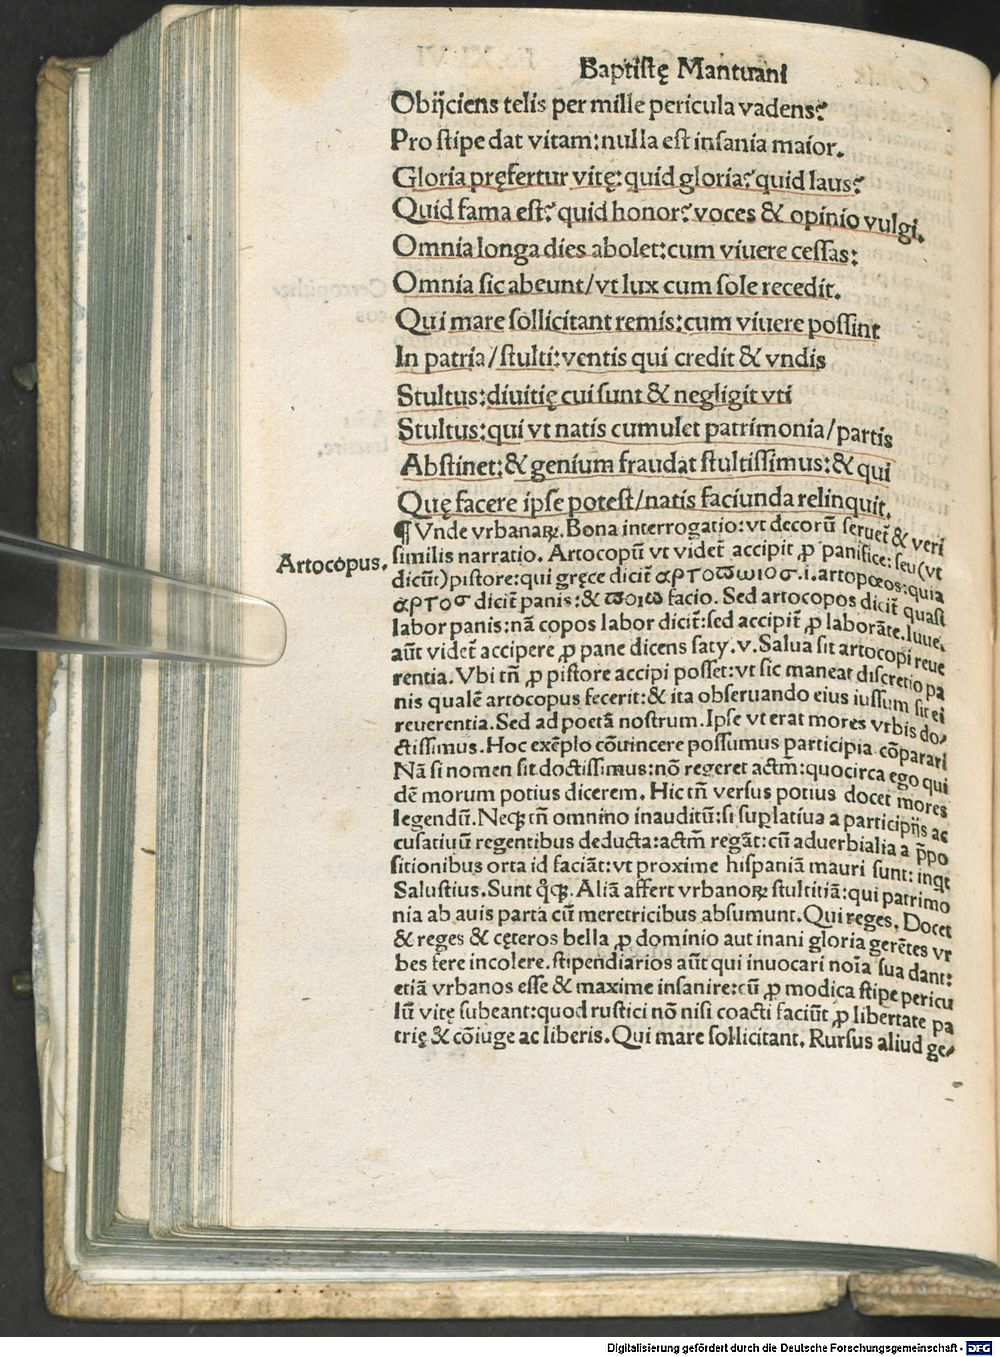 Baptistę Mantuani
Obijciens telis per mille pericula vadens?
Pro stipe dat vitam: nulla est insania maior.
Gloria pręfertur vitę: quid gloria? quid laus?
Quid fama est? quid honor? voces & opinio vulgi.
Omnia longa dies abolet: cum viuere cessas:
Omnia sic abeunt/ vt lux cum sole recedit.
Qui mare sollicitant remis: cum viuere possint
In patria/ stulti: ventis qui credit & vndis
Stultus: diuitię cui sunt & negligit vti
Stultus: qui vt natis cumulet patrimonia/ partis
Abstinet: & genium fraudat stultissimus: & qui
Quę facere ipse potest/ natis faciunda relinquit.
¶ Vnde vrbanaꝝ. Bona interrogatio: vt decorū seruet̃ & veri
Artocopus. similis narratio. Artocopū vt videt̃ accipit ꝓ panifice: seu (vt
dicūt) pistore: qui gręce dicit̃ αρτοϖωιοσ .i. artopœos: quia
αρτοσ dicit̃ panis: & ϖοιω facio. Sed artocopos dicit̃ quasi
labor panis: nā copos labor dicit̃: sed accipit̃ ꝓ laborāte. Iuue.
aūt videt̃ accipere ꝓ pane dicens saty. v. Salua sit artocopi reue
rentia. Vbi tñ ꝓ pistore accipi posset: vt sic maneat discretio pa
nis qualē artocopus fecerit: & ita obseruando eius iussum sit ei
reuerentia. Sed ad poetā nostrum. Ipse vt erat mores vrbis do⸗
ctissimus. Hoc exēplo cōuincere possumus participia cōparari
Nā si nomen sit doctissimus: nō regeret actm̃: quocirca ego qui
dē morum potius dicerem. Hic tñ versus potius docet mores
legendū. Neqꝫ tñ omnino inauditū: si suplatiua a participijs ac
cusatiuū regentibus deducta: actm̃ regāt: cū aduerbialia a p̃po
sitionibus orta id faciāt: vt proxime hispaniā mauri sunt: inqt
Salustius. Sunt qͦqꝫ. Aliā affert vrbanoꝝ stultitiā: qui patrimo
nia ab auis parta cū meretricibus absumunt. Qui reges. Docet
& reges & cęteros bella ꝓ dominio aut inani gloria gerētes vr
bes fere incolere. stipendiarios aūt qui inuocari noīa sua dant:
etiā vrbanos esse & maxime insanire: cū ꝓ modica stipe pericu
lū vitę subeant: quod rustici nō nisi coacti faciūt ꝓ libertate pa
trię & cōiuge ac liberis. Qui mare sollicitant. Rursus aliud ge⸗
Digitalisierung gefördert durch die Deutsche Forschungsgemeinschaft - DFG